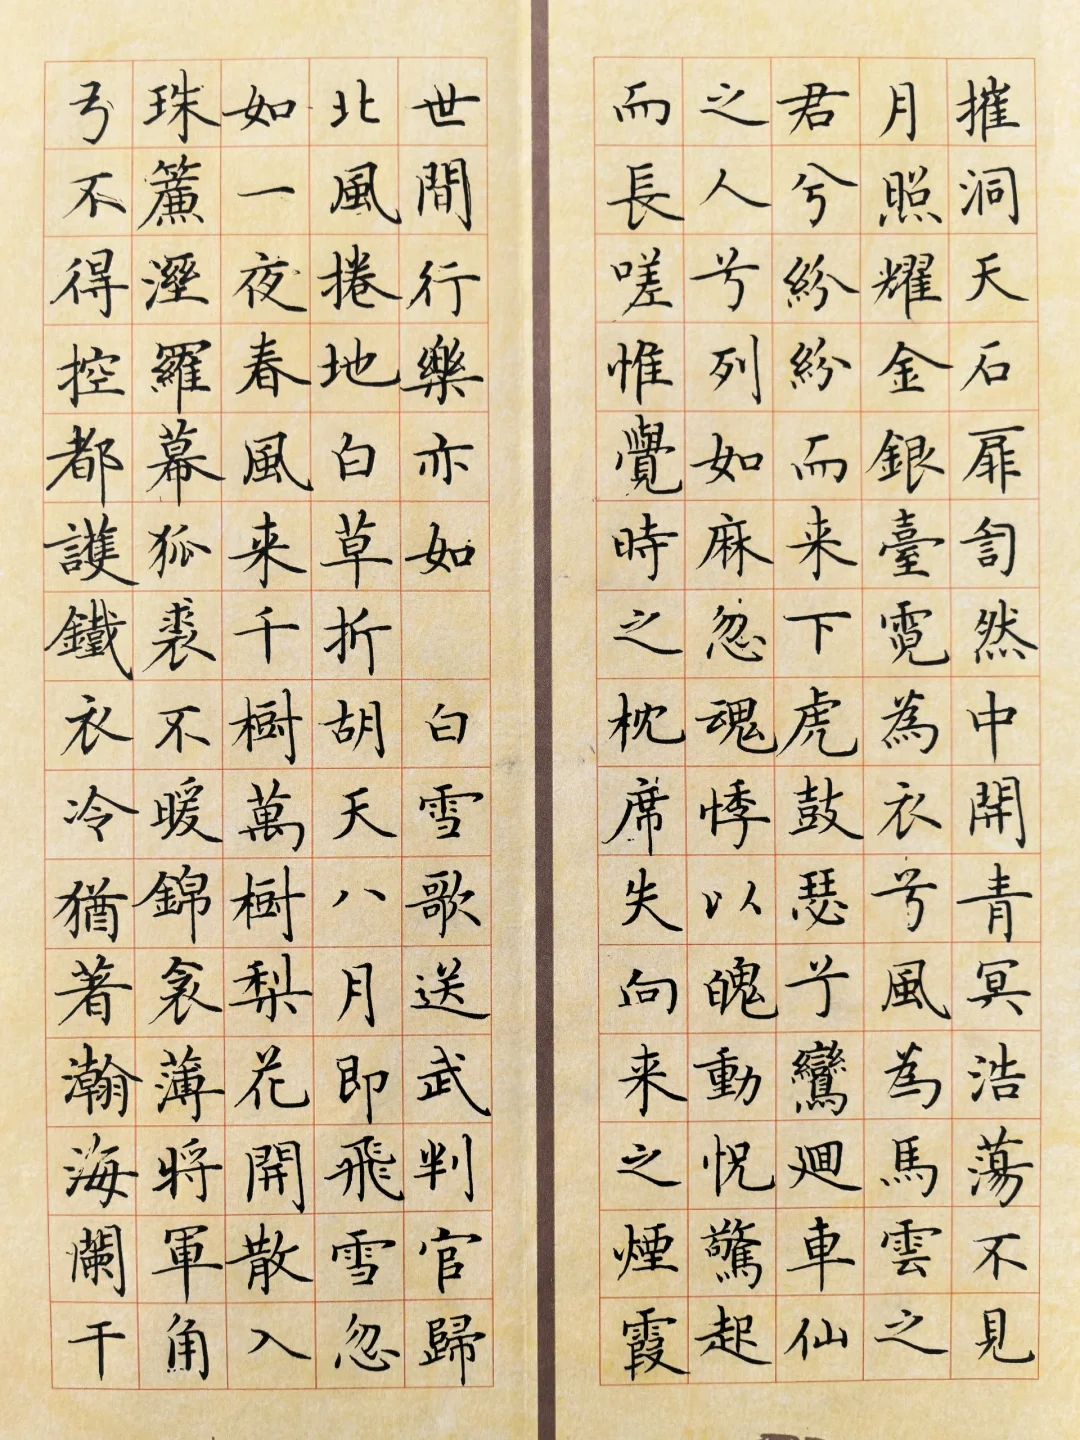 摧洞天石扉訇然中開青冥浩蕩不見
月照耀金銀臺霓為衣兮風為馬雲之
君兮紛紛而来下虎鼓瑟兮鸞廻車仙
之人兮列如麻忽魂悸以魄動怳驚起
而長嗟惟覺時之枕席失向来之煙霞
世間行樂亦如 白雪歌送武判官歸
北風捲地白草折胡天八月即飛雪忽
如一夜春風来千樹萬樹梨花開散入
珠簾溼羅幕狐裘不暖錦衾薄将軍角
弓不得控都護鐵衣冷猶著瀚海闌干